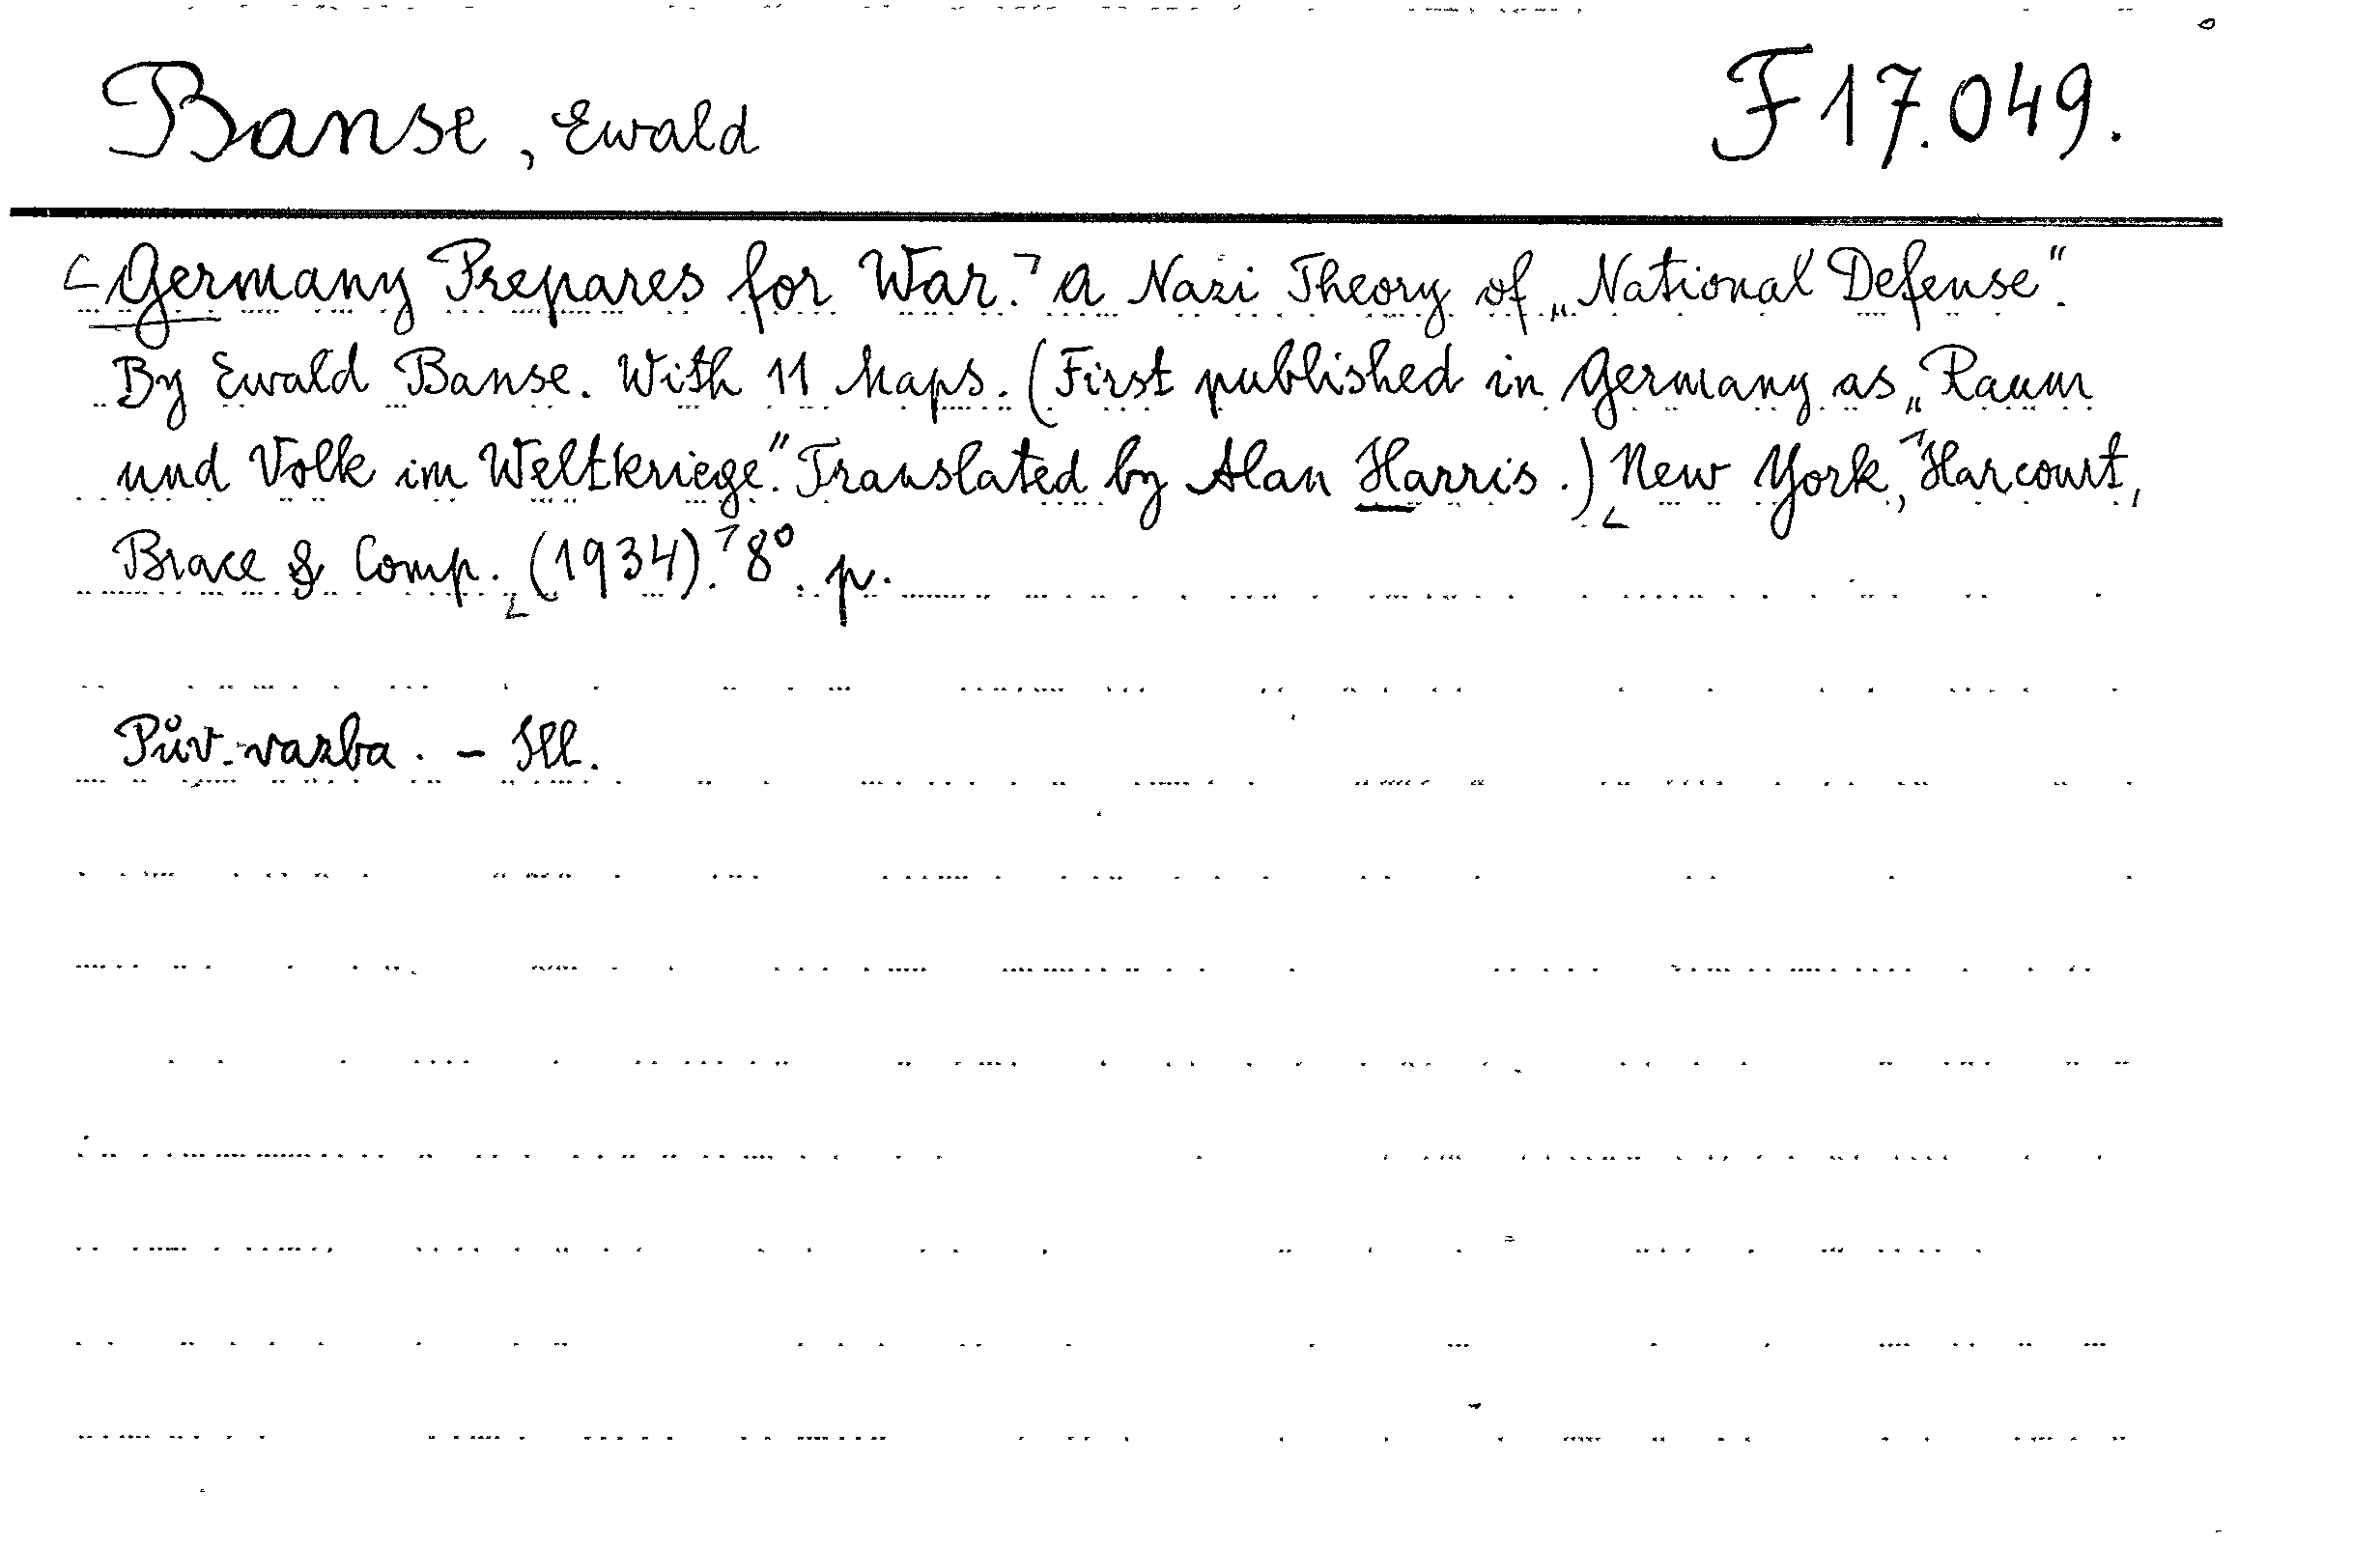 Banse, Ewald F 17.049.
Germany Prepares for War. A Nazi Theory of „National Defense“.
By Ewald Banse. With 11 Maps. (First published in Germany as „Raum
und Volk im Weltkriege“. Translated by Alan Harris.) New York, Harcourt,
Brace & Comp. (1934). 8°. p.
Pův. vazba. - Ill.